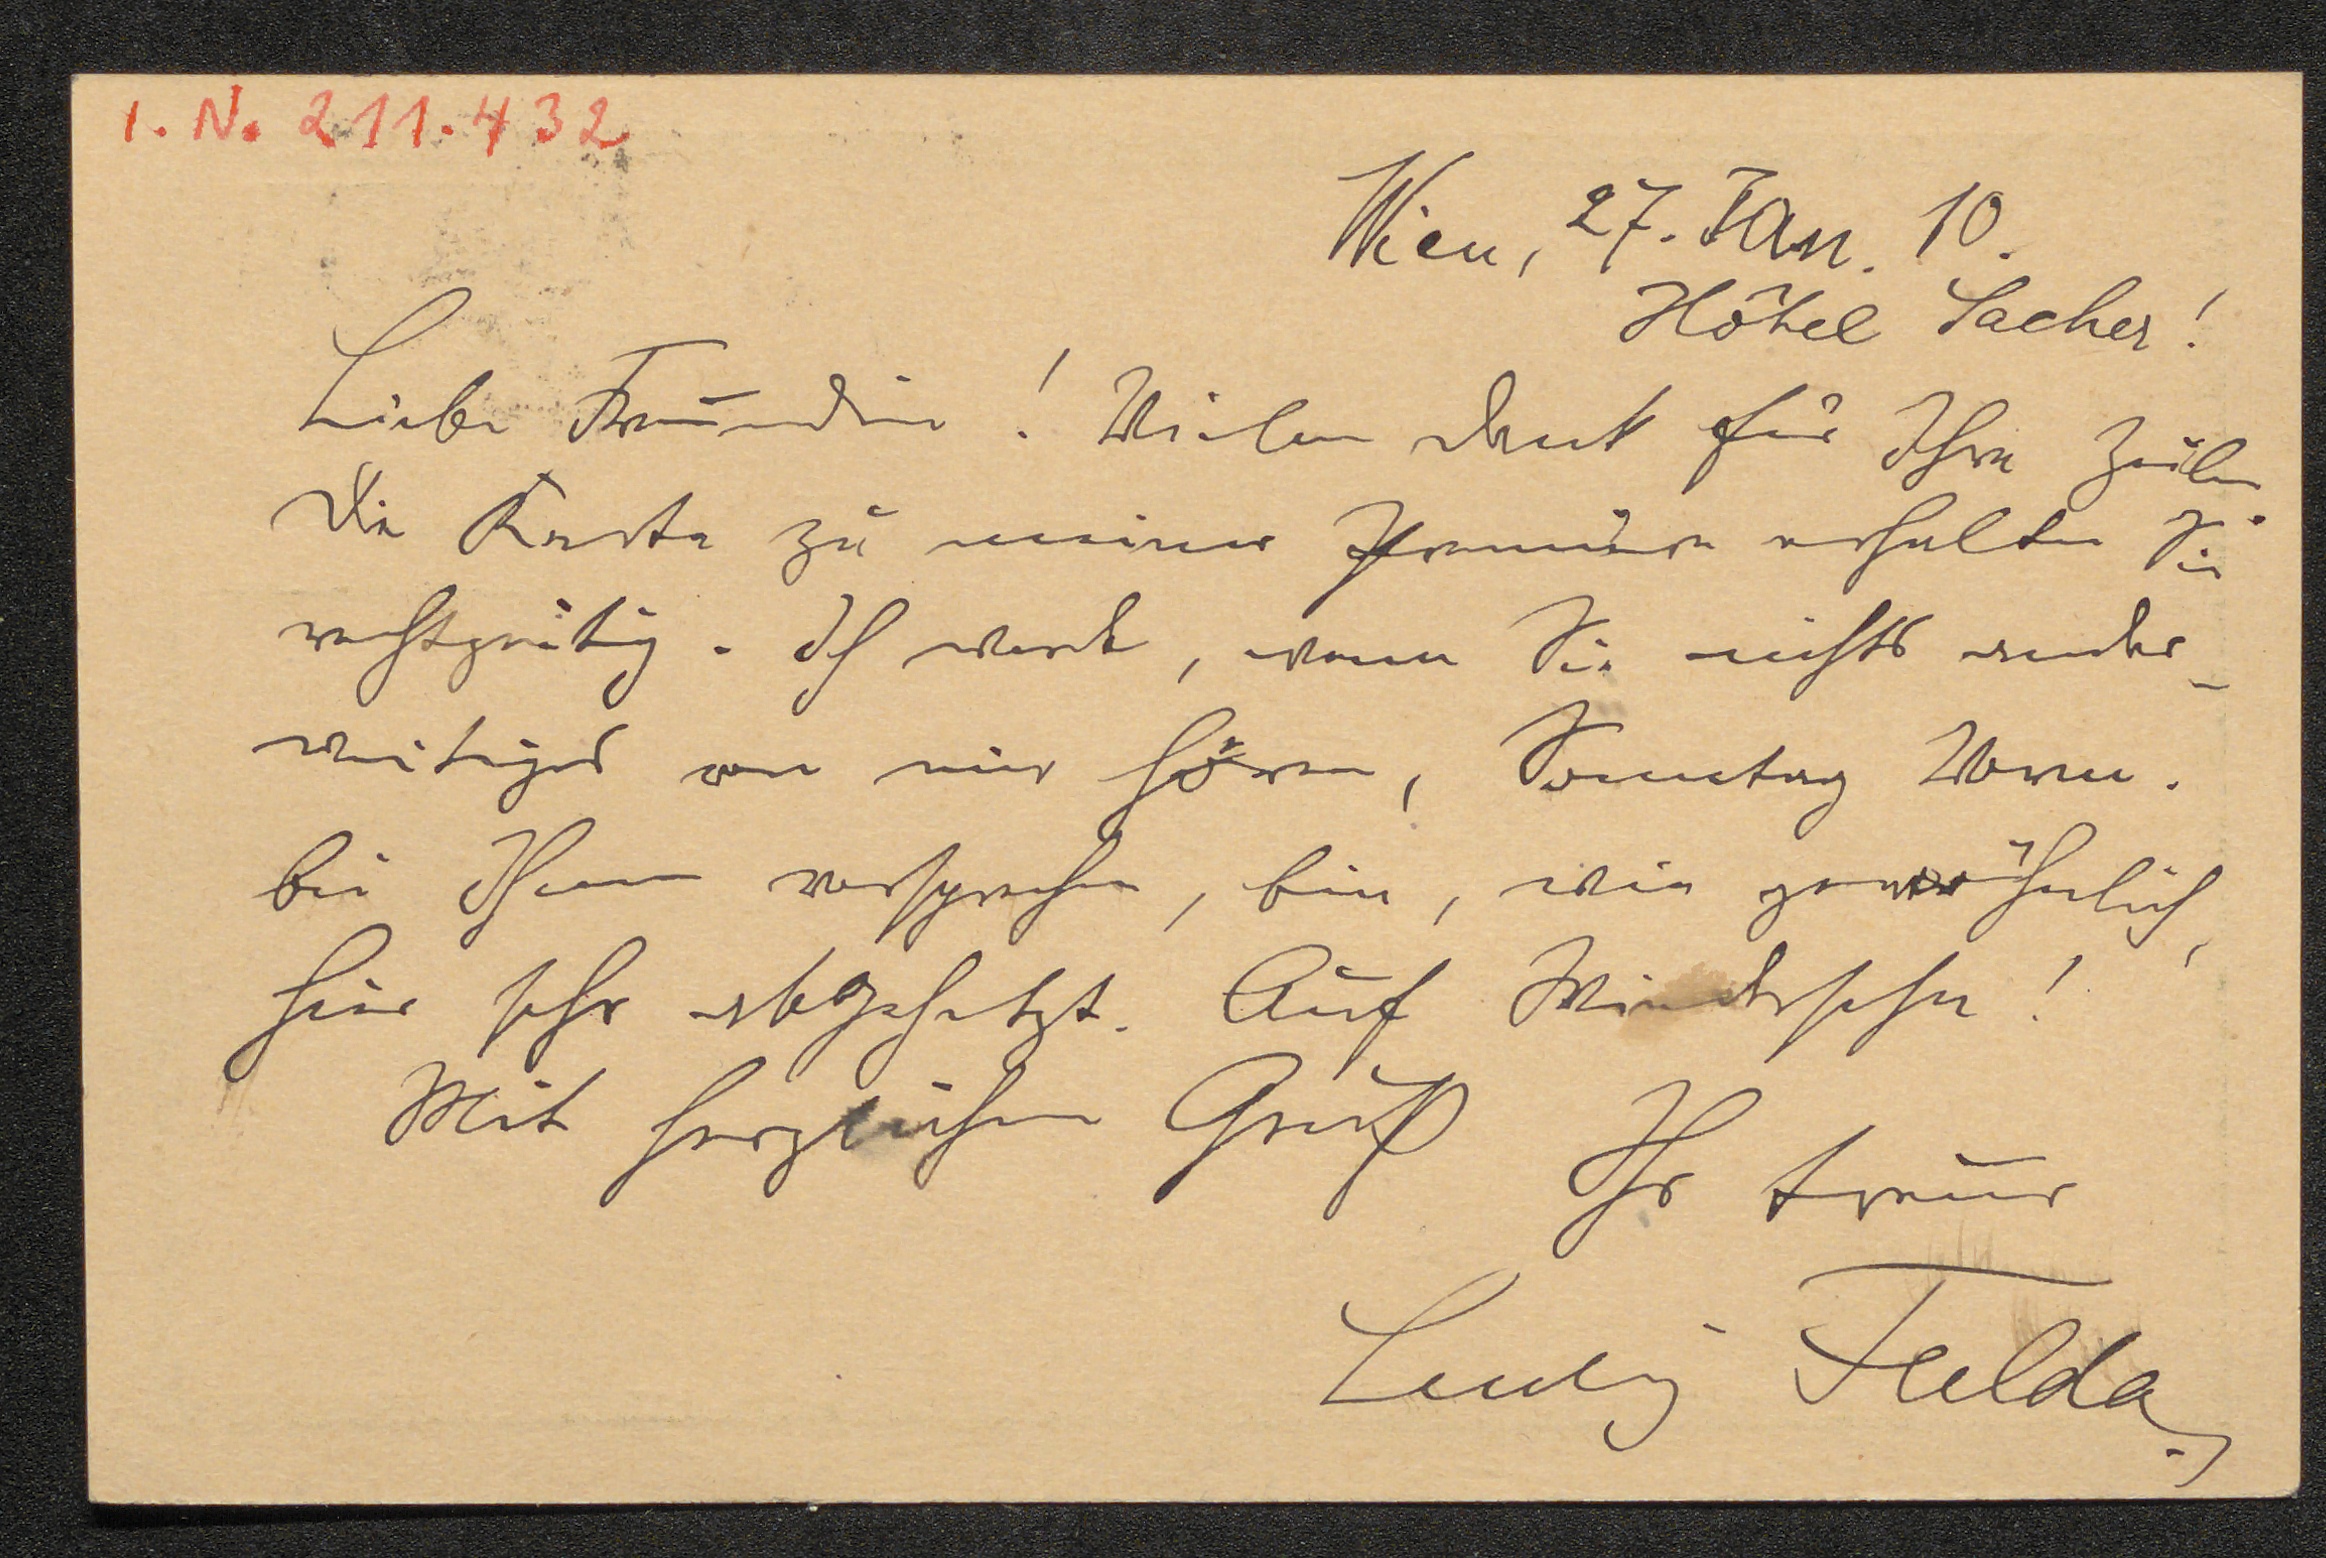 I. N. 211.432
Wien, 27. Jan. 10.
Hôtel Sacher!
Liebe Freundin! Vielen Dank für Ihre Zeilen.
Die Karte zu meiner Première erhalten Sie
rechtzeitig. Ich werde, wenn Sie nichts ander-
weitiges von mir hören, Sonntag Vorm.
bei Ihnen vorsprechen, bin, wie gewöhnlich,
hier sehr abgehetzt. Auf Wiedersehn!
Mit herzlichem Gruß
Ihr treuer
Ludwig Fulda.